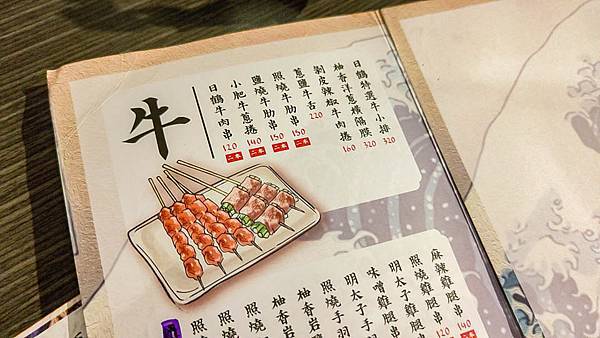 牛
日鶴特選牛小排 320
柚香洋蔥橫隔膜 320
剝皮辣椒牛肉捲 160
蔥鹽牛舌 220
照燒牛肋串 150 二串
鹽燒牛肋串 150 二串
小肥牛蔥捲 140 二串
日鶴牛肉串 120 二串
麻辣雞腿串 140
照燒雞腿串 120
明太子雞腿串
味噌雞腿串
明太子手
照燒手羽
柚香岩
柚香岩
照燒
照燒
照